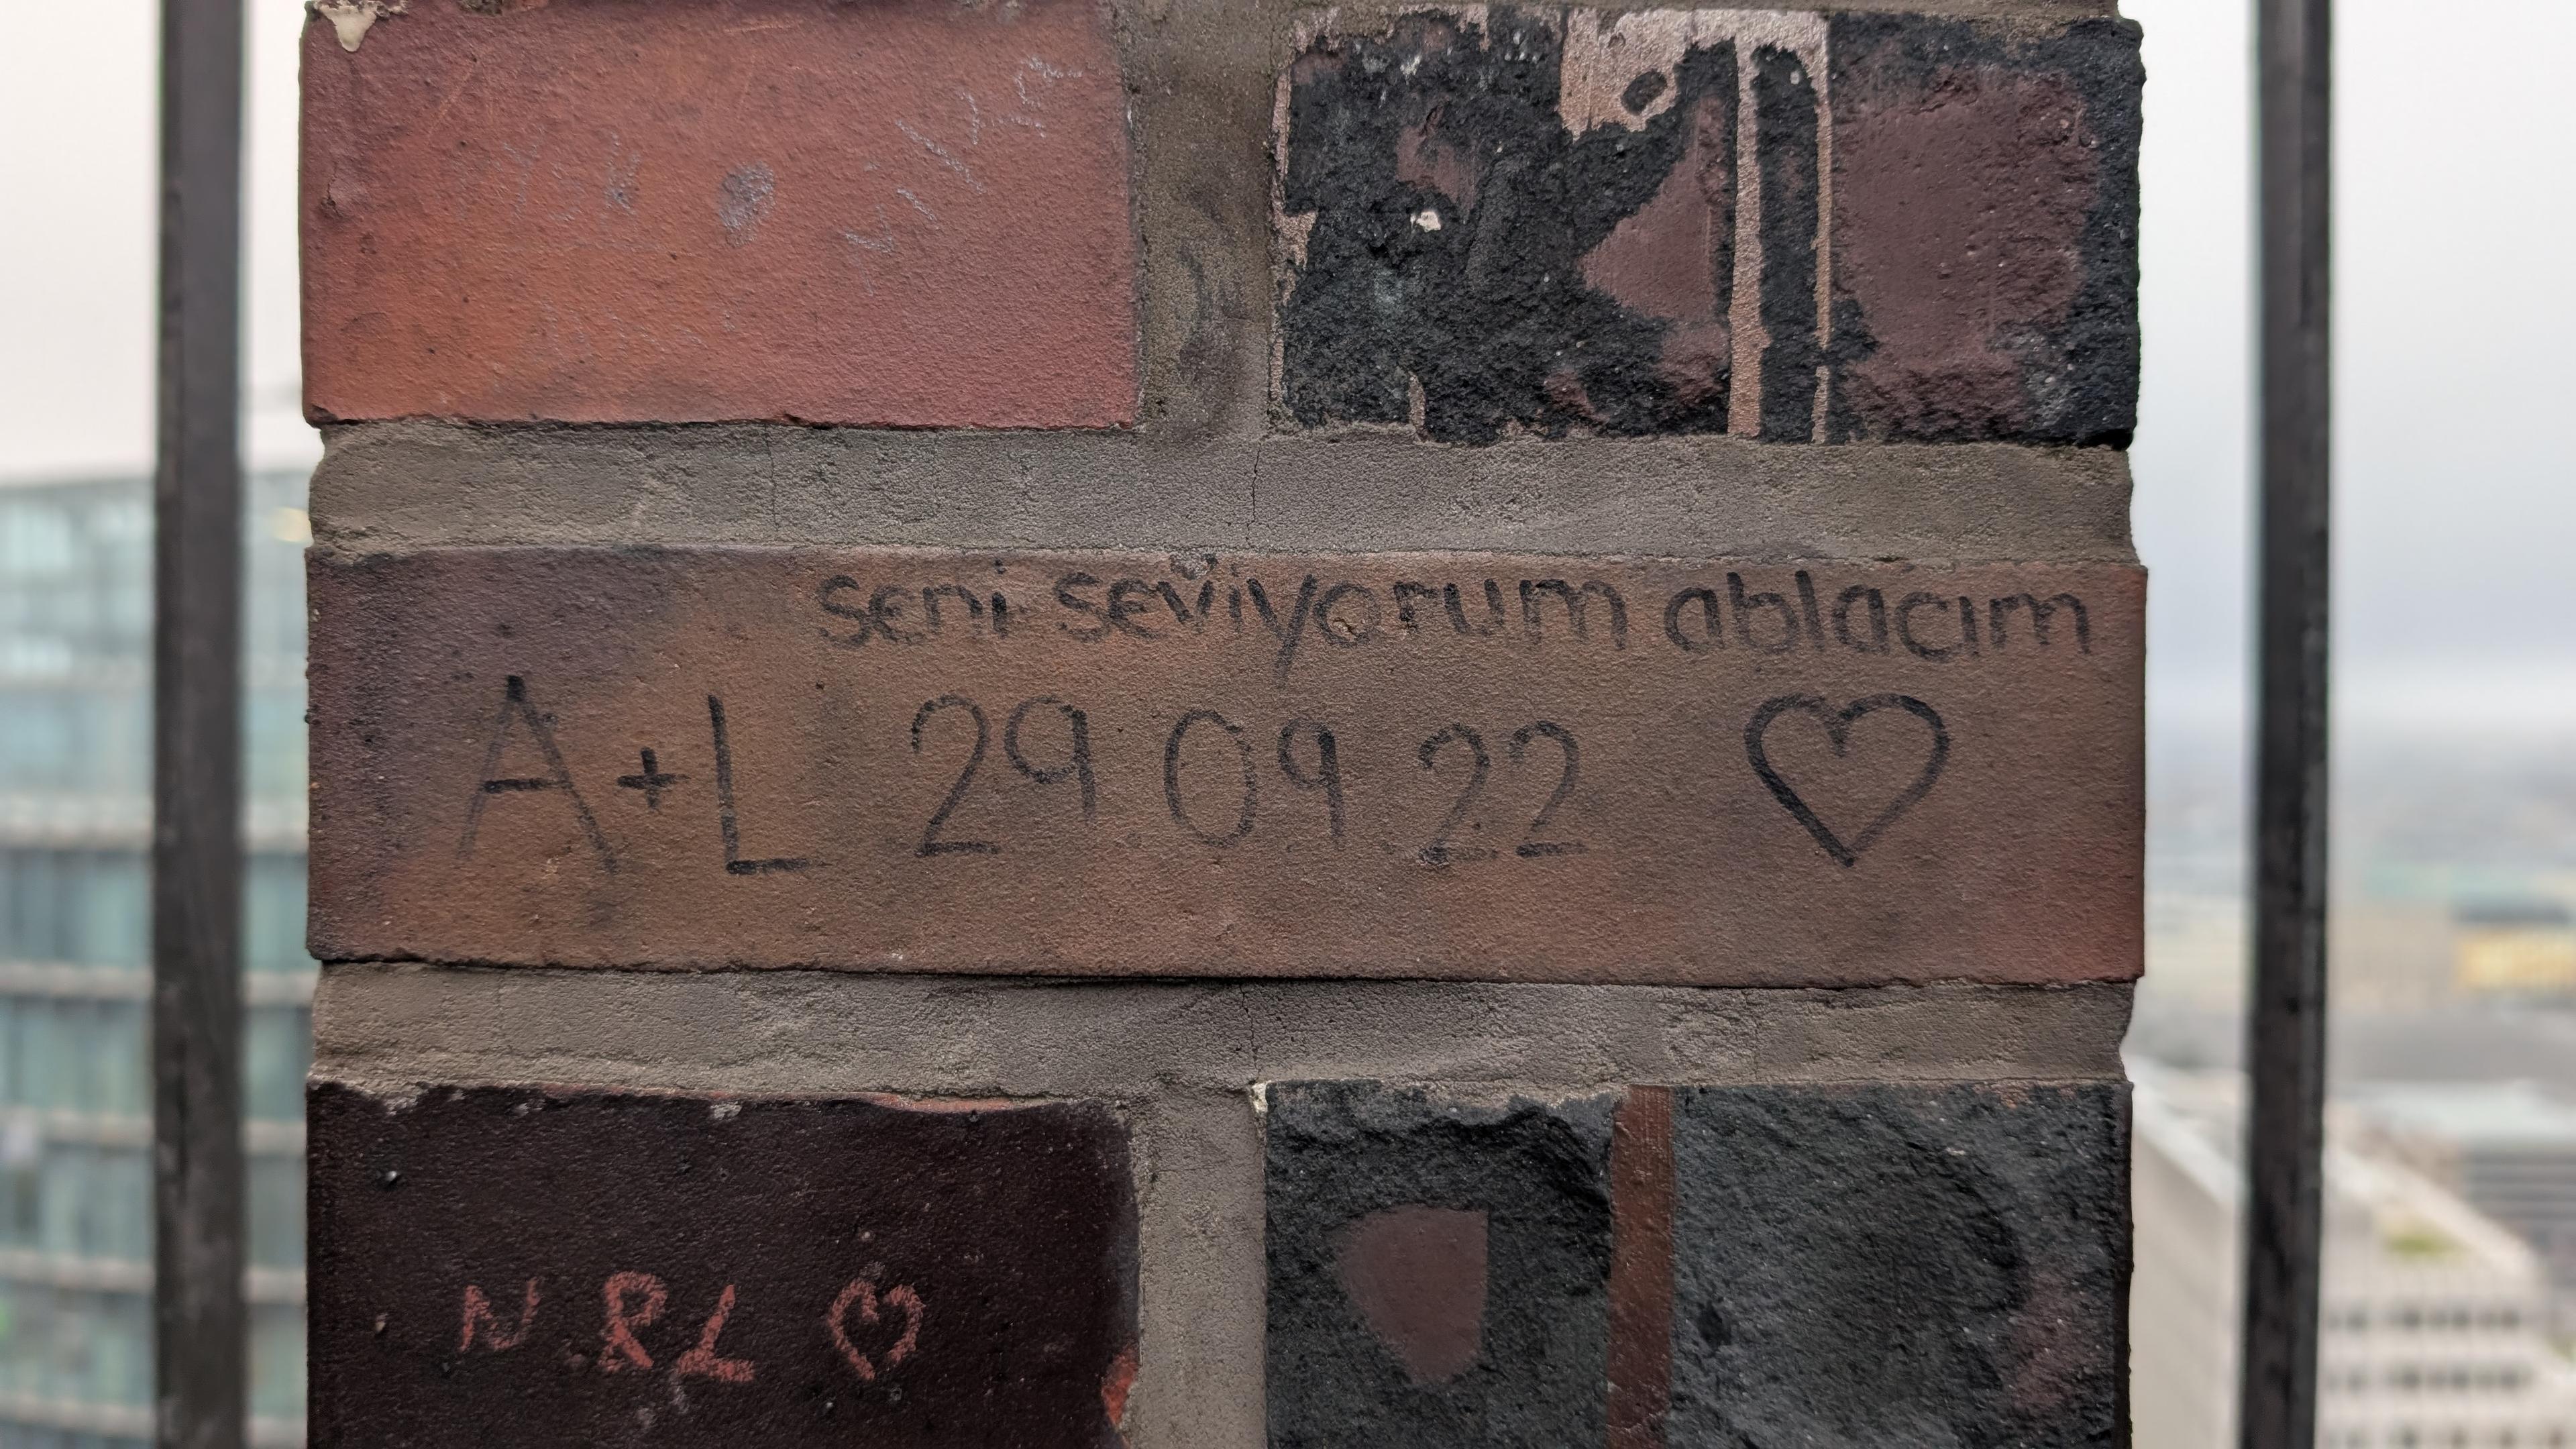 seni seviyorum ablacım
A+L 29.09.22 ♡
N & L ♡